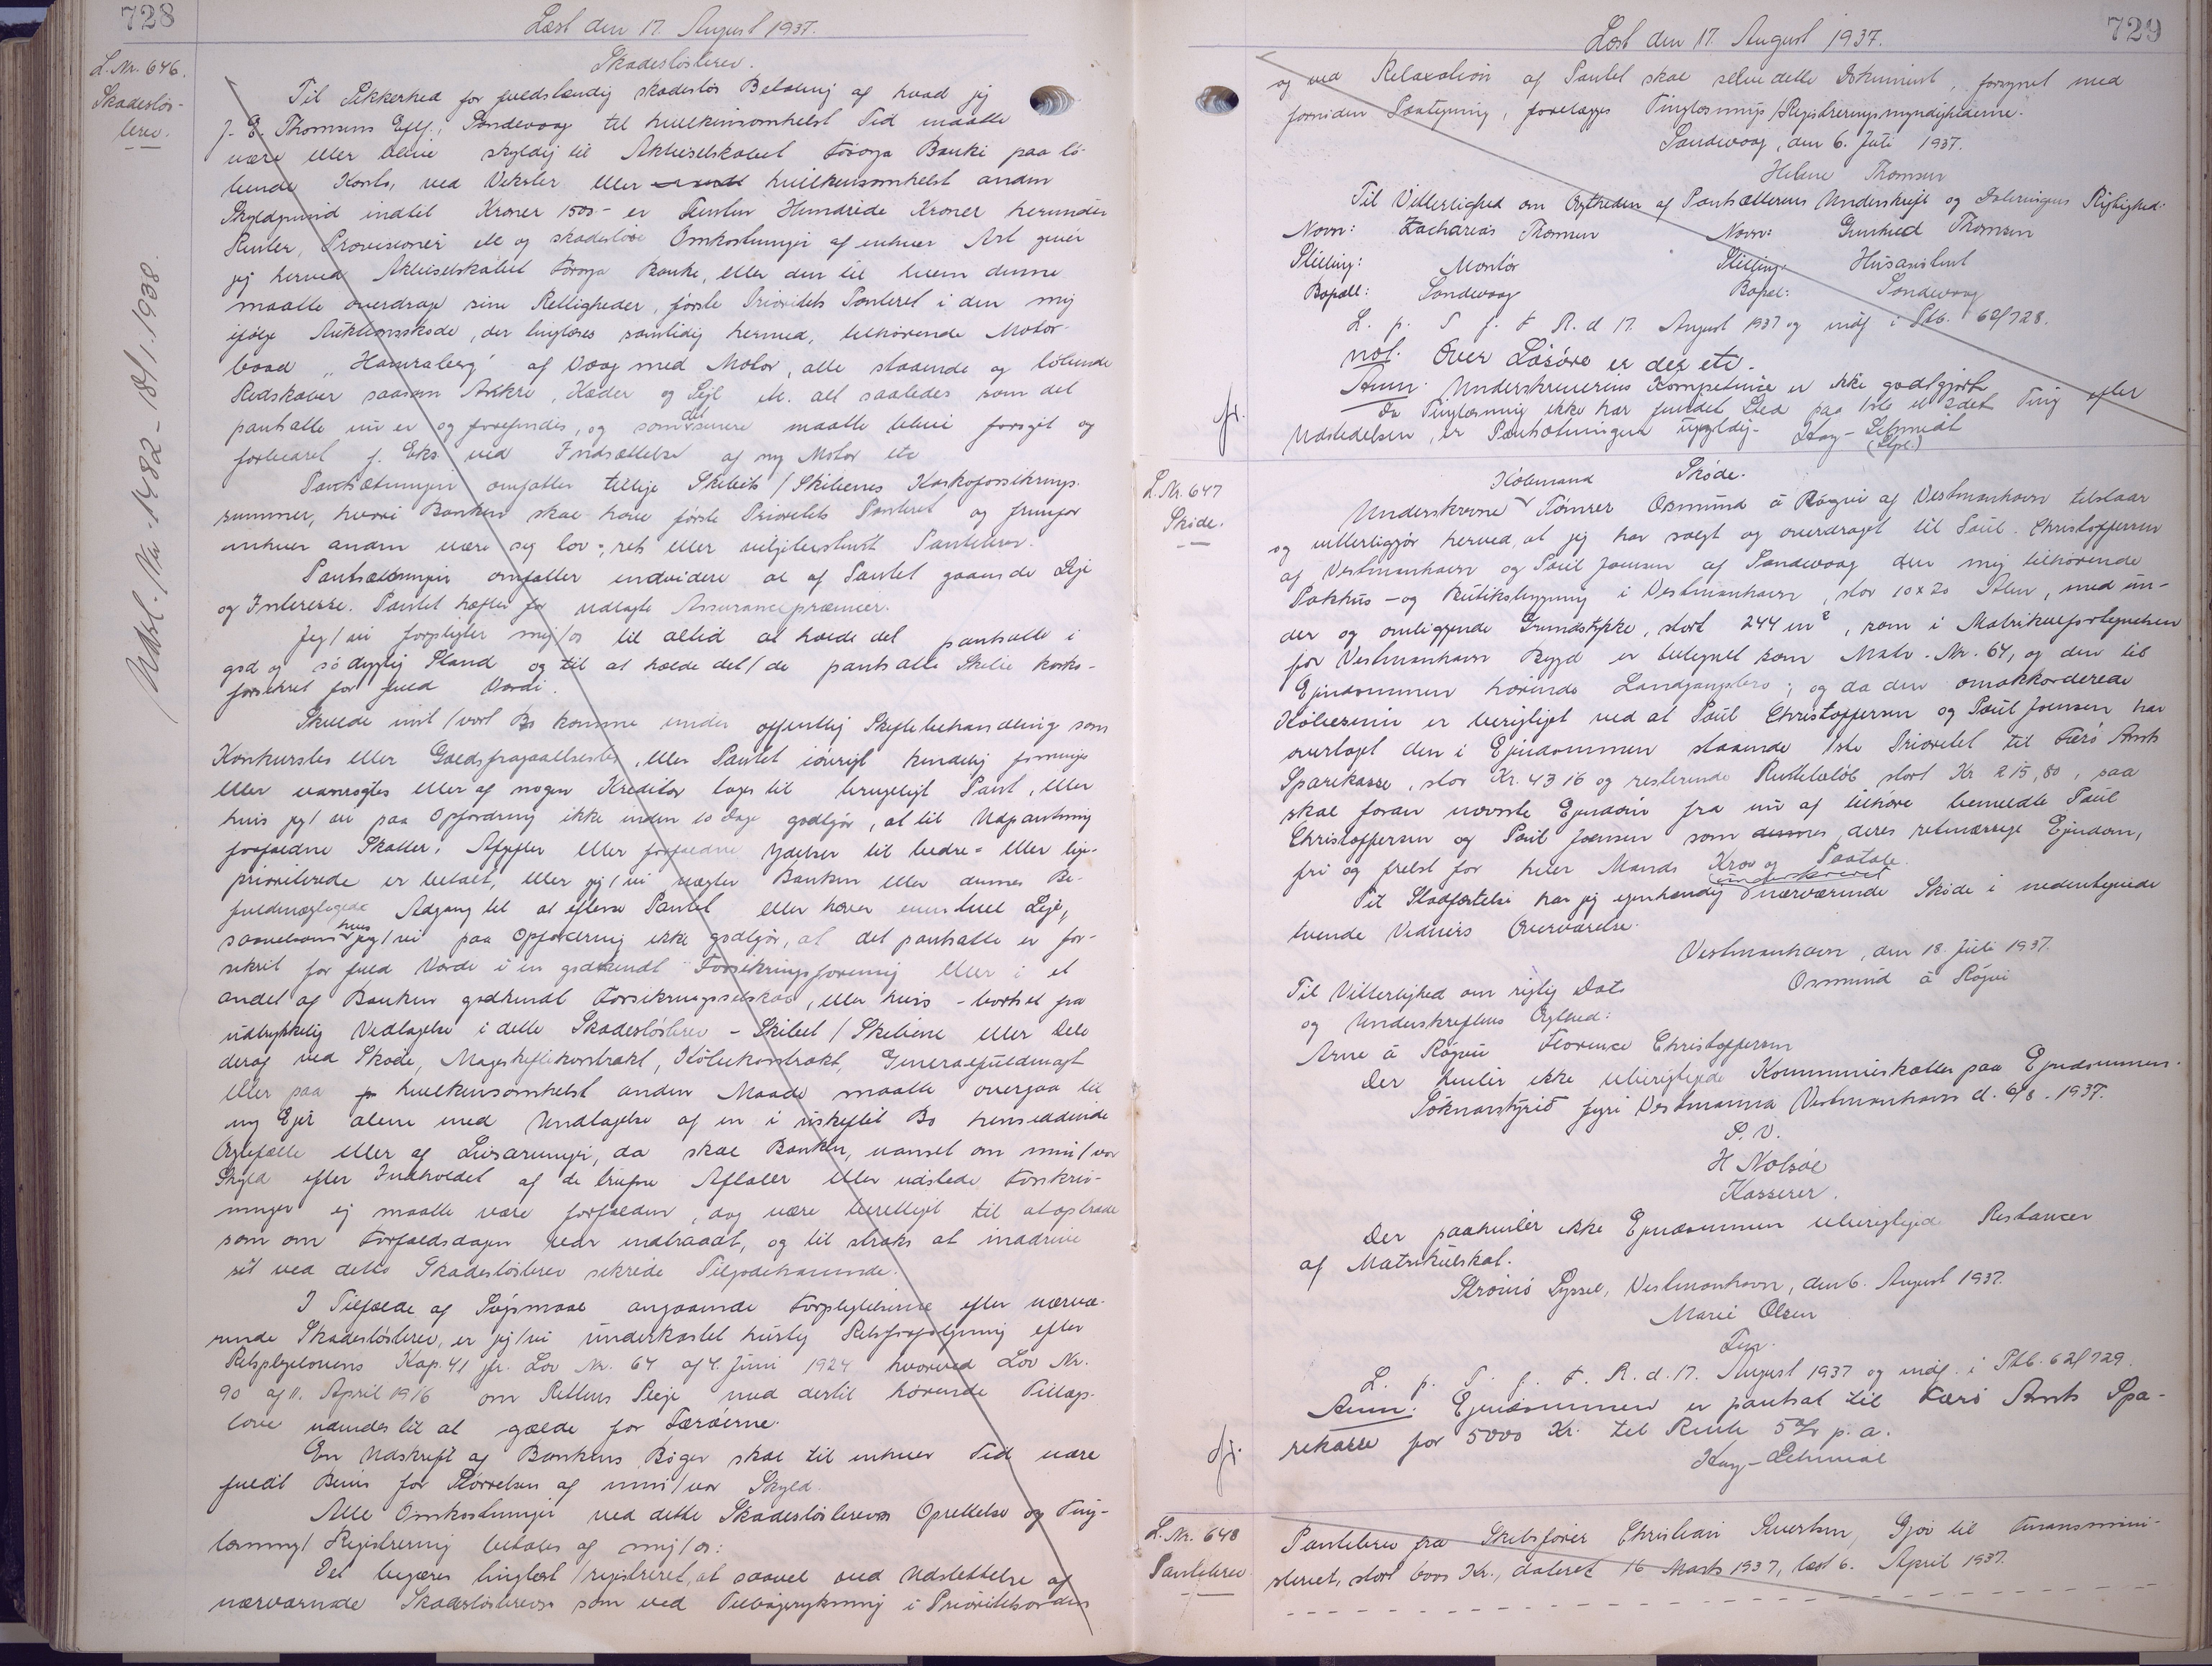 728
Læst den 17. August 1937.
L. Nr. 646.
Skadesløs-
brev.
Udsl. Nr. 1482 - 18/1. 1938.
Skadesløsbrev.
Til Sikkerhed for fuldstændig skadesløs Betaling af hvad jeg
J. E. Thomsens Eftf., Sandevaag til hvilkensomhelst Tid maatte
være eller blive skyldig til Aktieselskabet Føroya Banki paa lø-
bende Konto, ved Veksler eller hvilkensomhelst anden
Skyldgrund indtil Kroner 1500- er Femten Hundrede Kroner herunder
Renter, Provisioner etc og skadesløse Omkostninger af enhver Art giver
jeg herved Aktieselskabet Føroya Banke, eller den til hvem denne
maatte overdrage sine Rettigheder, første Prioritets Panteret i den mig
ifølge Auktionsskøde, der tinglæses samtidig hermed, tilhørende Motor-
baad „Hamraberg" af Vaag med Motor, alle staaende og løbende
Redskaber saasom Ankre, Kæder og Sejl etc. alt saaledes som det
pantsatte nu er og forefindes, og som det senere maatte blive forøget og
forbedret f. Eks. ved Indsættelse af ny Motor etc
Pantsætningen omfatter tillige Skibets/Skibenes Kaskoforsikrings-
summer, hvori Banken skal have første Prioritets Panteret og fremfor
enhver anden være sig lov-, ret- eller viljesbestemt Pantebrev.
Pantsætningen omfatter endvidere al af Pantet gaaende Leje
og Interesse. Pantet hæfter for udlagte Assurancepræmier.
Jeg/vi forpligter mig/os til altid at holde det pantsatte i
god og sødygtig Stand og til at holde det/de pantsatte Skibe kasko-
forsikret for fuld Værdi.
Skulde mit/vort Bo komme under offentlig Skiftebehandling som
Konkursbo eller Gældsfragaaelsesbo, eller Pantet iøvrigt kendelig forringes
eller vanrøgtes eller af nogen Kreditor tages til brugeligt Pant, eller
hvis jeg/vi paa Opfordring ikke inden 10 Dage godtgør, at til Udpantning
forfaldne Skatter, Afgifter eller forfaldne Ydelser til bedre- eller lige-
prioriterede er betalt, eller jeg/vi nægter Banken eller dennes Be-
fuldmægtigede Adgang til at efterse Pantet eller hæver eventuel Leje,
saavelsom hvis jeg/vi paa Opfordring ikke godtgør, at det pantsatte er for-
sikret for fuld Værdi i en godkendt Forsikringsforening eller i et
andet af Banken godkendt Forsikringsselskab, eller hvis - bortset fra
udtrykkelig Vedtagelse i dette Skadesløsbrev - Skibet/Skibene eller Dele
deraf ved Skøde, Mageskiftekontrakt, Købekontrakt, Generalfuldmagt
eller paa hvilkensomhelst anden Maade maatte overgaa til
ny Ejer alene med Undtagelse af en i uskiftet Bo hensiddende
Ægtefælle eller af Livsarvinger, da skal Banken, uanset om min/vor
Skyld efter Indholdet af de trufne Aftaler eller udstede Forskriv-
ninger ej maatte være forfalden, dog være berettiget til at optræde
som om Forfaldsdagen var indtraadt, og til straks at inddrive
sit ved dette Skadesløsbrev sikrede Tilgodehavende.
I Tilfælde af Søgsmaal angaaende Forpligtelserne efter nærvæ-
rende Skadesløsbrev, er jeg/vi underkastet hurtig Retsforfølgning efter
Retsplejelovens Kap. 41 jfr. Lov Nr. 64 af 4. Juni 1924 hvorved Lov Nr.
90 af 11. April 1916 om Rettens Pleje med dertil hørende Tillægs-
love udvides til at gælde for Færøerne.
En Udskrift af Bankens Bøger skal til enhver Tid være
fuldt Bevis for Størrelsen af min/vor Skyld.
Alle Omkostninger ved dette Skadesløsbrevs Oprettelse og Ting-
læsning/Registrering betales af mig/os:
Det begæres tinglæst/registreret, at saavel ved Udslettelse af
nærværende Skadesløsbrev som ved Tilbagerykning i Prioritetsorden
729
Læst den 17. August 1937.
og ved Relaxation af Pantet skal selve dette Dokument, forsynet med
fornøden Paategning, forelægges Tinglæsnings/Registreringsmyndighederne.
Sandevaag, den 6. Juli 1937.
Helene Thomsen
Til Vitterlighed om Ægtheden af Pantsætterens Underskrift og Dateringens Rigtighed:
Navn: Zacharias Thomsen Navn: Gunhild Thomsen
Stilling: Montør Stilling: Husassistent
Bopæl: Sandevaag Bopæl: Sandevaag
L. p. T. f. F. R. d 17. August 1937 og indf i Ptb. 62/728.
nof. Over Løsøre er der etc.
Anm. Underskriverens Kompetence er ikke godtgjort.
Da Tinglæsning ikke har fundet Sted paa 1ste el 2det Ting efter
Udstedelsen, er Pantsætningen ugyldig. Kay-Schmidt
(Stpl.)
fr.
L. Nr. 647
Skøde.
Købmand Skøde.
Underskrevne Tømrer Osmund á Rógvi af Vestmanhavn tilstaar
og vitterliggør herved, at jeg har solgt og overdraget til Paul. Christoffersen
af Vestmanhavn og Poul Joensen af Sandevaag den mig tilhørende
Pakhus - og Butiksbygning i Vestmanhavn, stor 10x20 Alen, med un-
der og omliggende Grundstykke, stort 244 m², som i Matrikulfortegnelsen
for Vestmanhavn Bygd er betegnet som Matr. Nr. 64, og den til
Ejendommen hørende Landgangsbro; og da den omakkorderede
Købesum er berigtiget ved at Poul Christoffersen og Poul Joensen har
overtaget den i Ejendommen staaende 1ste Prioritet til Færø Amts
Sparekasse, stor Kr. 4316 og resterende Restbeløb stort Kr 215,80, saa
skal foran nævnte Ejendom fra nu af tilhøre bemeldte Poul
Christoffersen og Poul Joensen som deres retmæssige Ejendom,
fri og frelst for hver Mands Krav og Paatale.
Til Stadfæstelse har jeg egenhændig underskrevet nærværende Skøde i nedentegnede
tvende Vidners Overværelse.
Vestmanhavn, den 18. Juli 1937.
Osmund á Rógvi
Til Vitterlighed om rigtig Dato
og Underskriftens Ægthed:
Arne á Rógvu Florence Christoffersen
Der hviler ikke uberigtigede Kommuneskatter paa Ejendommen.
Soknarstýrið fyri Vestmanna Vestmanhavn d. 6/8. 1937.
P. V.
H Nolsøe
Kasserer.
Der paahviler ikke Ejendommen uberigtigede Restancer
af Matrikulskat.
Strømø Syssel, Vestmanhavn, den 6. August 1937.
Marie Olsen
L. p. T. f. F. R. d. 17. August 1937 og indf. i Ptb. 62/729.
Anm: Ejendommen er pantsat til Færø Amts Spa-
rekasse for 5000 Kr. til Rente 5% p. a.
Kay-Schmidt
fr.
L. Nr. 648
Pantebrev
Pantebrev fra Skibsfører Christian Sivertsen, Gjov til Finansmini-
steriet, stort Kr., dateret 16 Marts 1937, læst 6. April 1937.